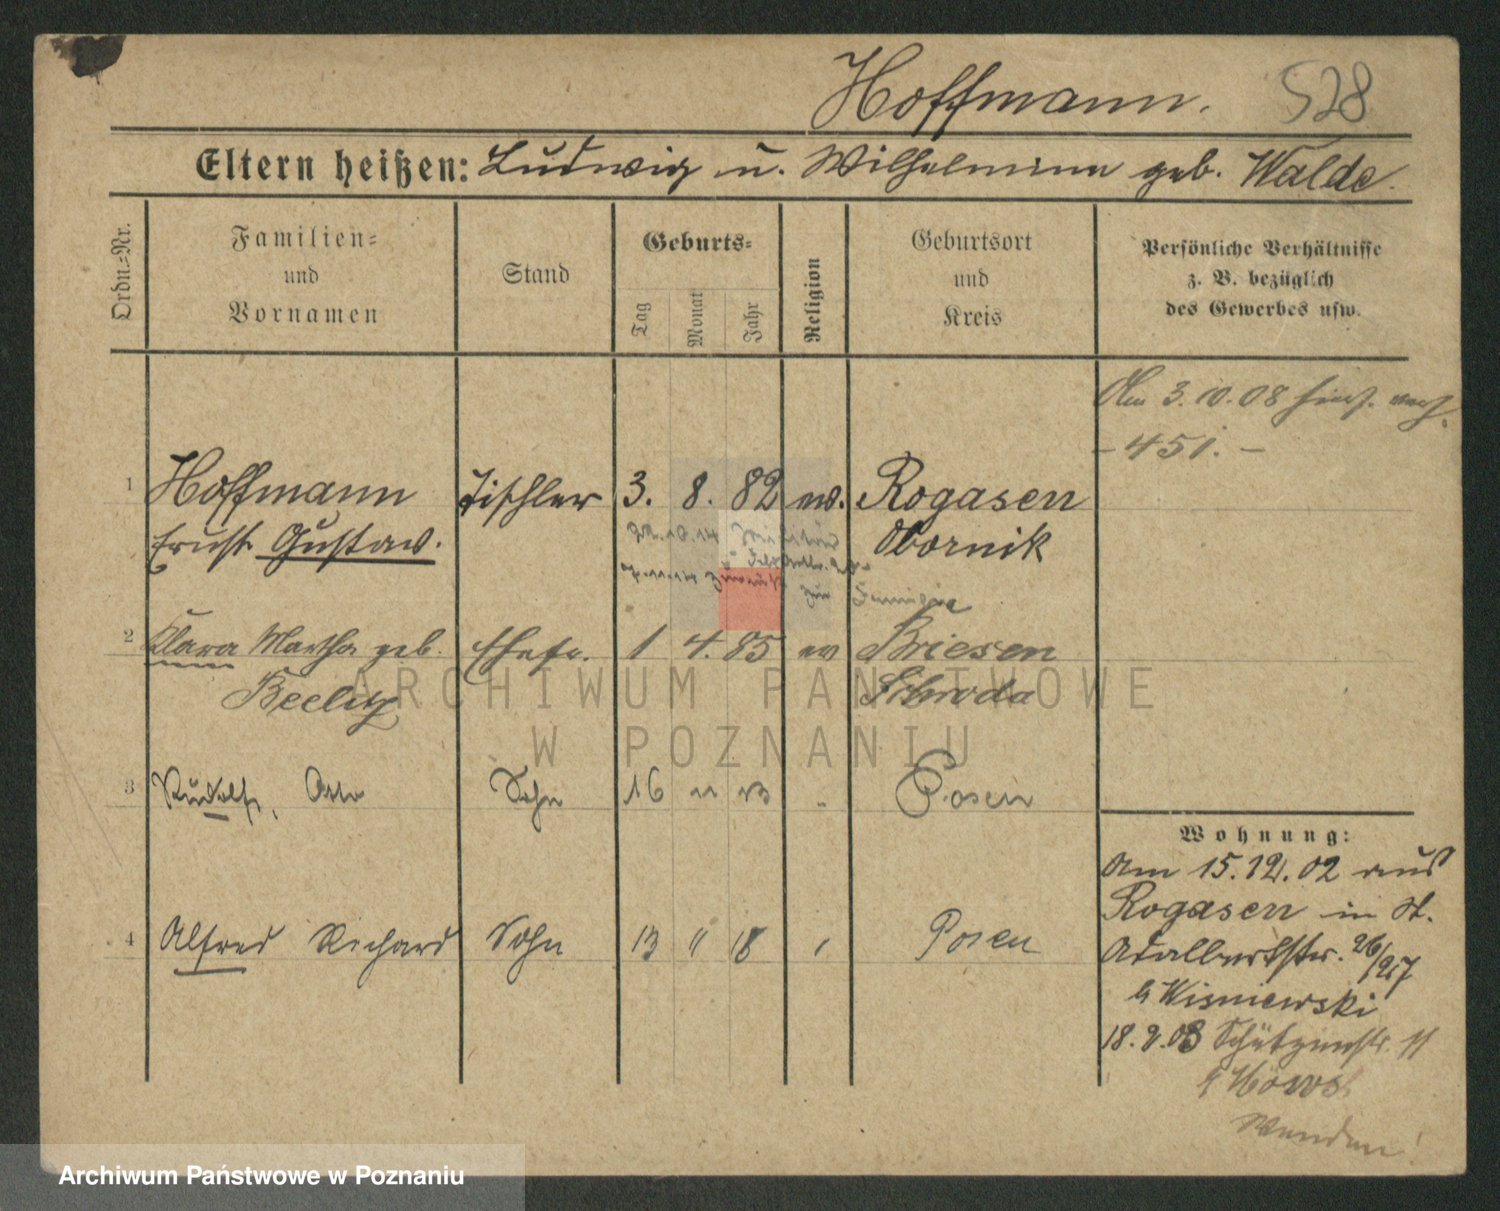 Hoffmann.
528
Eltern heißen: Ludwig u. Wilhelmine geb. Walde.
Ordn.-Nr.
Familien-
und
Vornamen
Stand
Geburts-
Tag
Monat
Jahr
Religion
Geburtsort
und
Kreis
Persönliche Verhältnisse
z. B. bezüglich
des Gewerbes usw.
Am 3. 10. 08
- 451. -
1 Hoffmann Tischler 3. 8. 82 ev. Rogasen
Ernst Gustav. Obornik
zur
2 Klara Martha geb. Ehefr. 1 4. 85 ev Briesen
Beelitz Schroda
3 Rudolf, Otto Sohn 16 11 13 " Posen
4 Alfred Richard Sohn 13 " 18 Posen
Wohnung:
Am 15. 12. 02 aus
Rogasen in St.
Adalbertstr. 26/27
b Wisniewski
18. 2. 03 Schützenstr. 11
b
Wenden!
ARCHIWUM PAŃSTWOWE
W POZNANIU
Archiwum Państwowe w Poznaniu